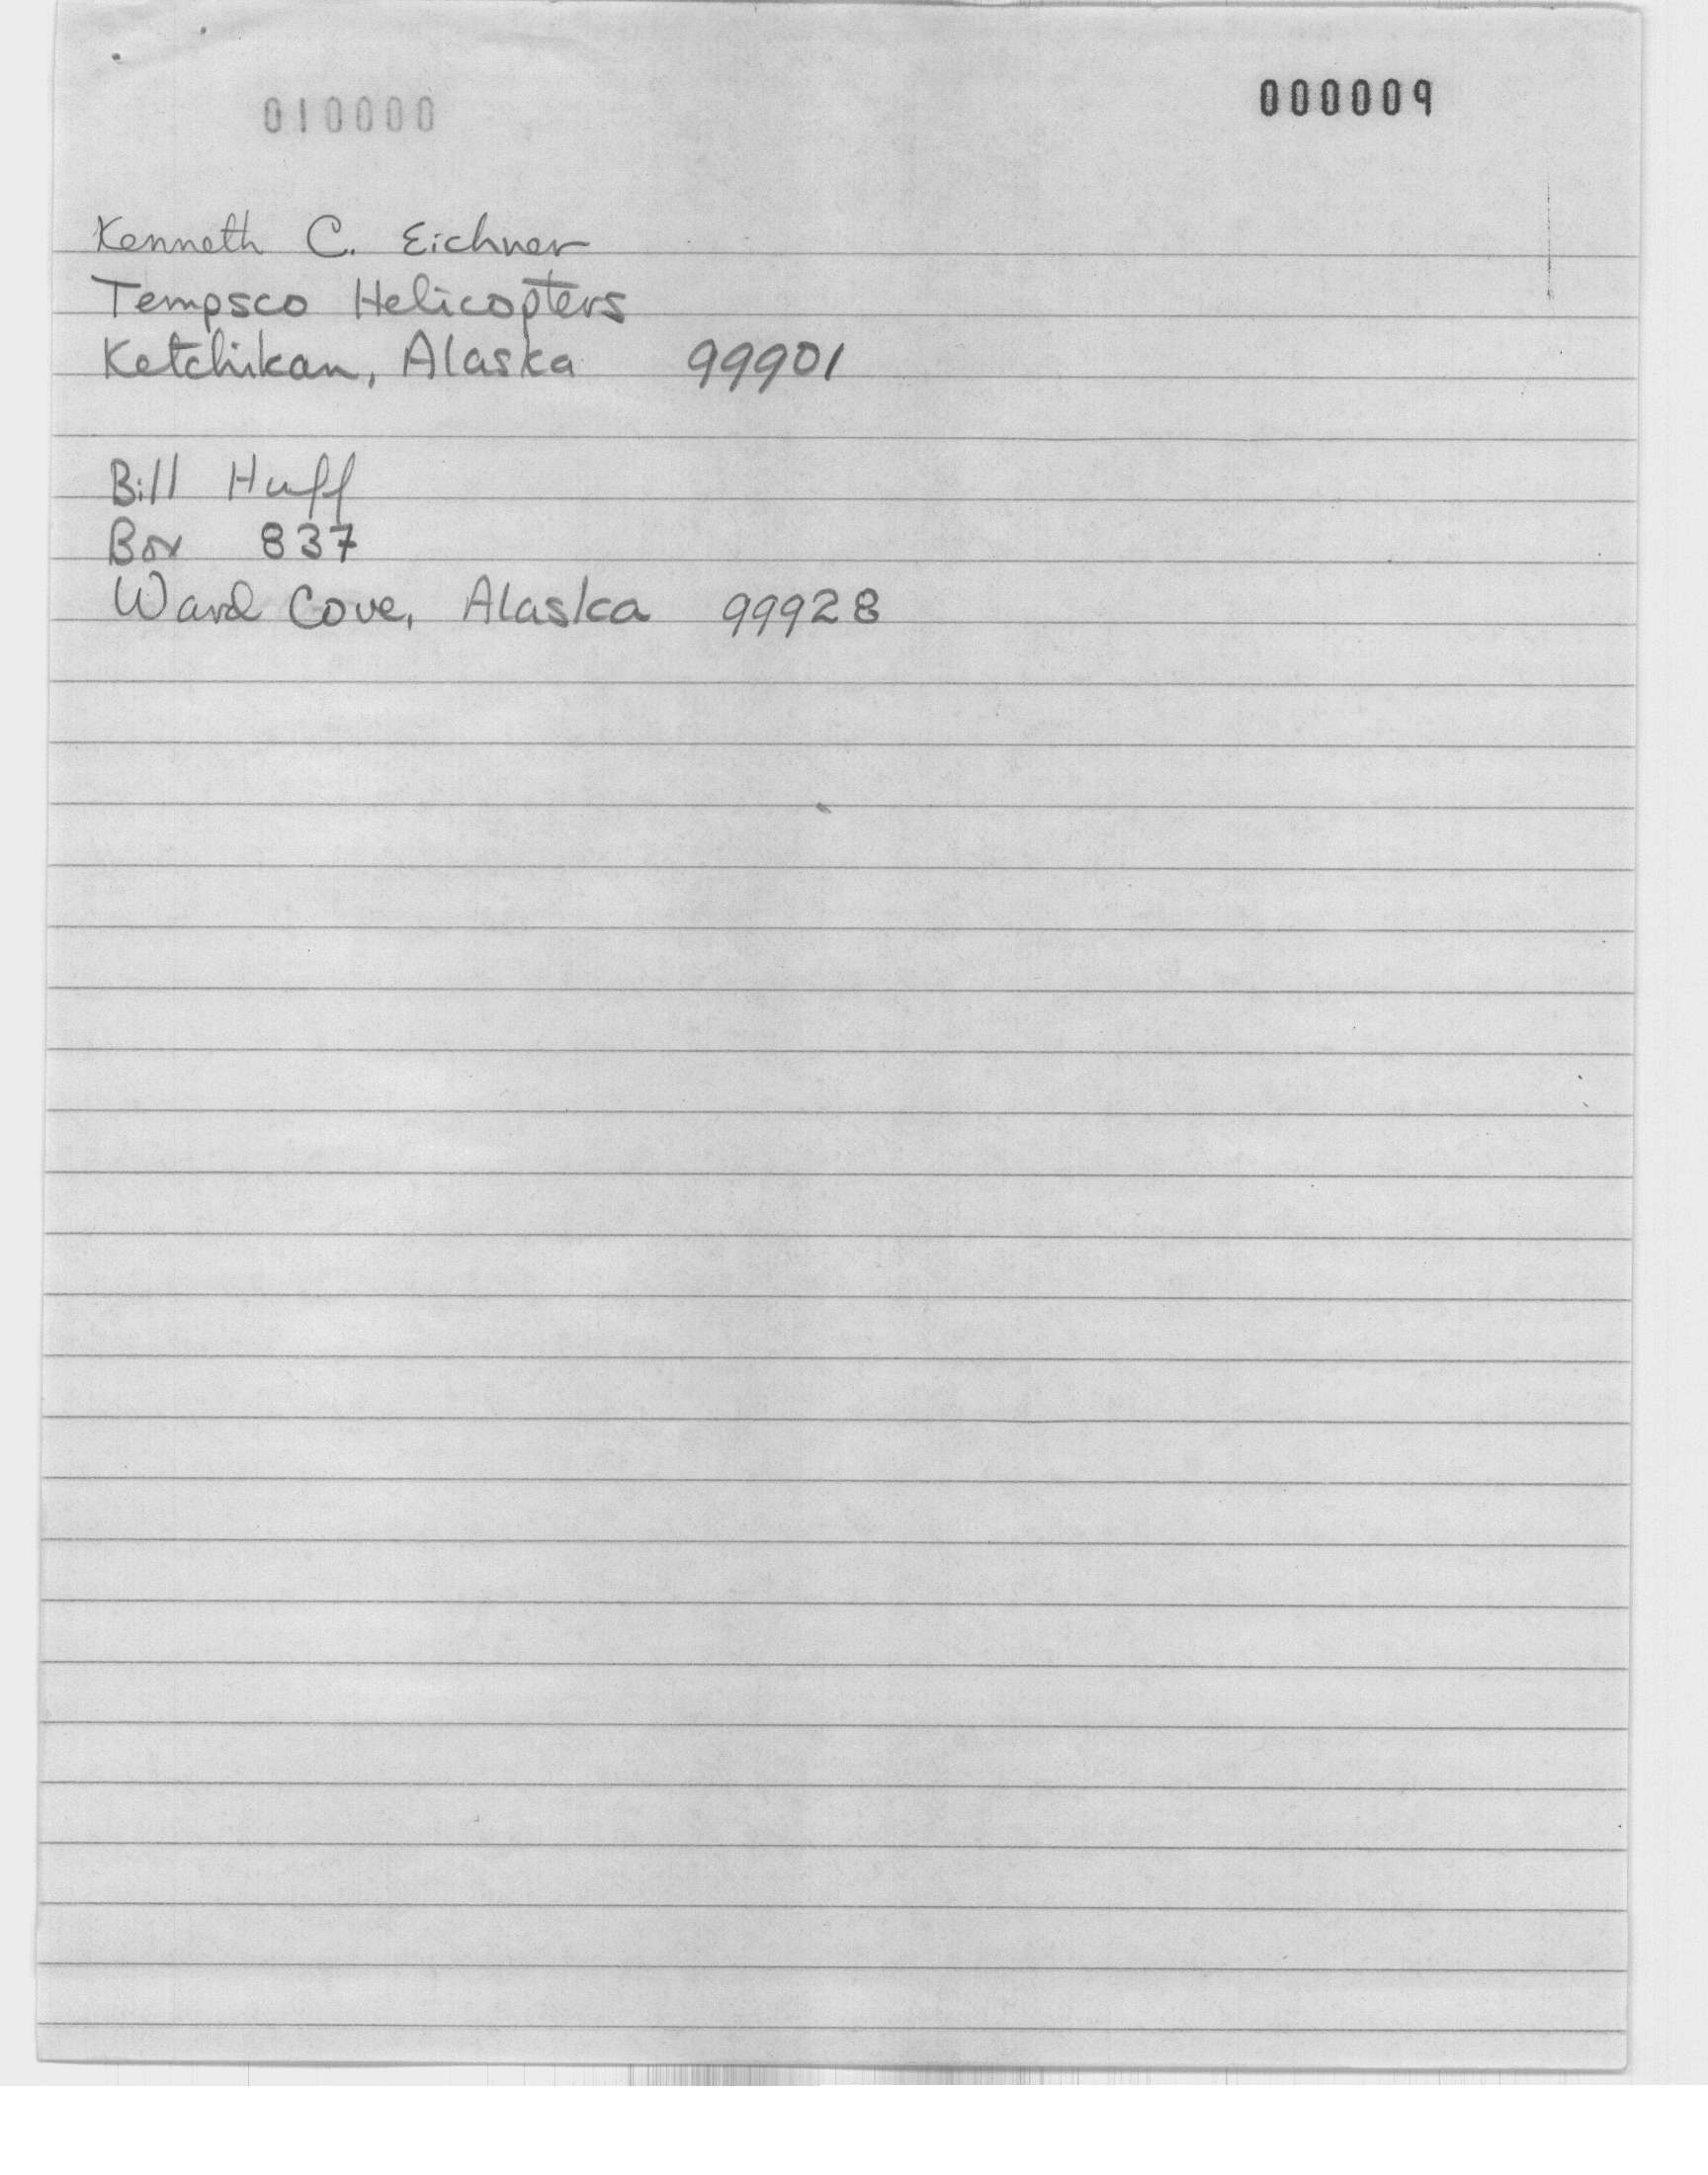 010000 000009
Kenneth C. Eichner
Tempsco Helicopters
Ketchikan, Alaska 99901
Bill Huff
Box 837
Ward Cove, Alaska 99928